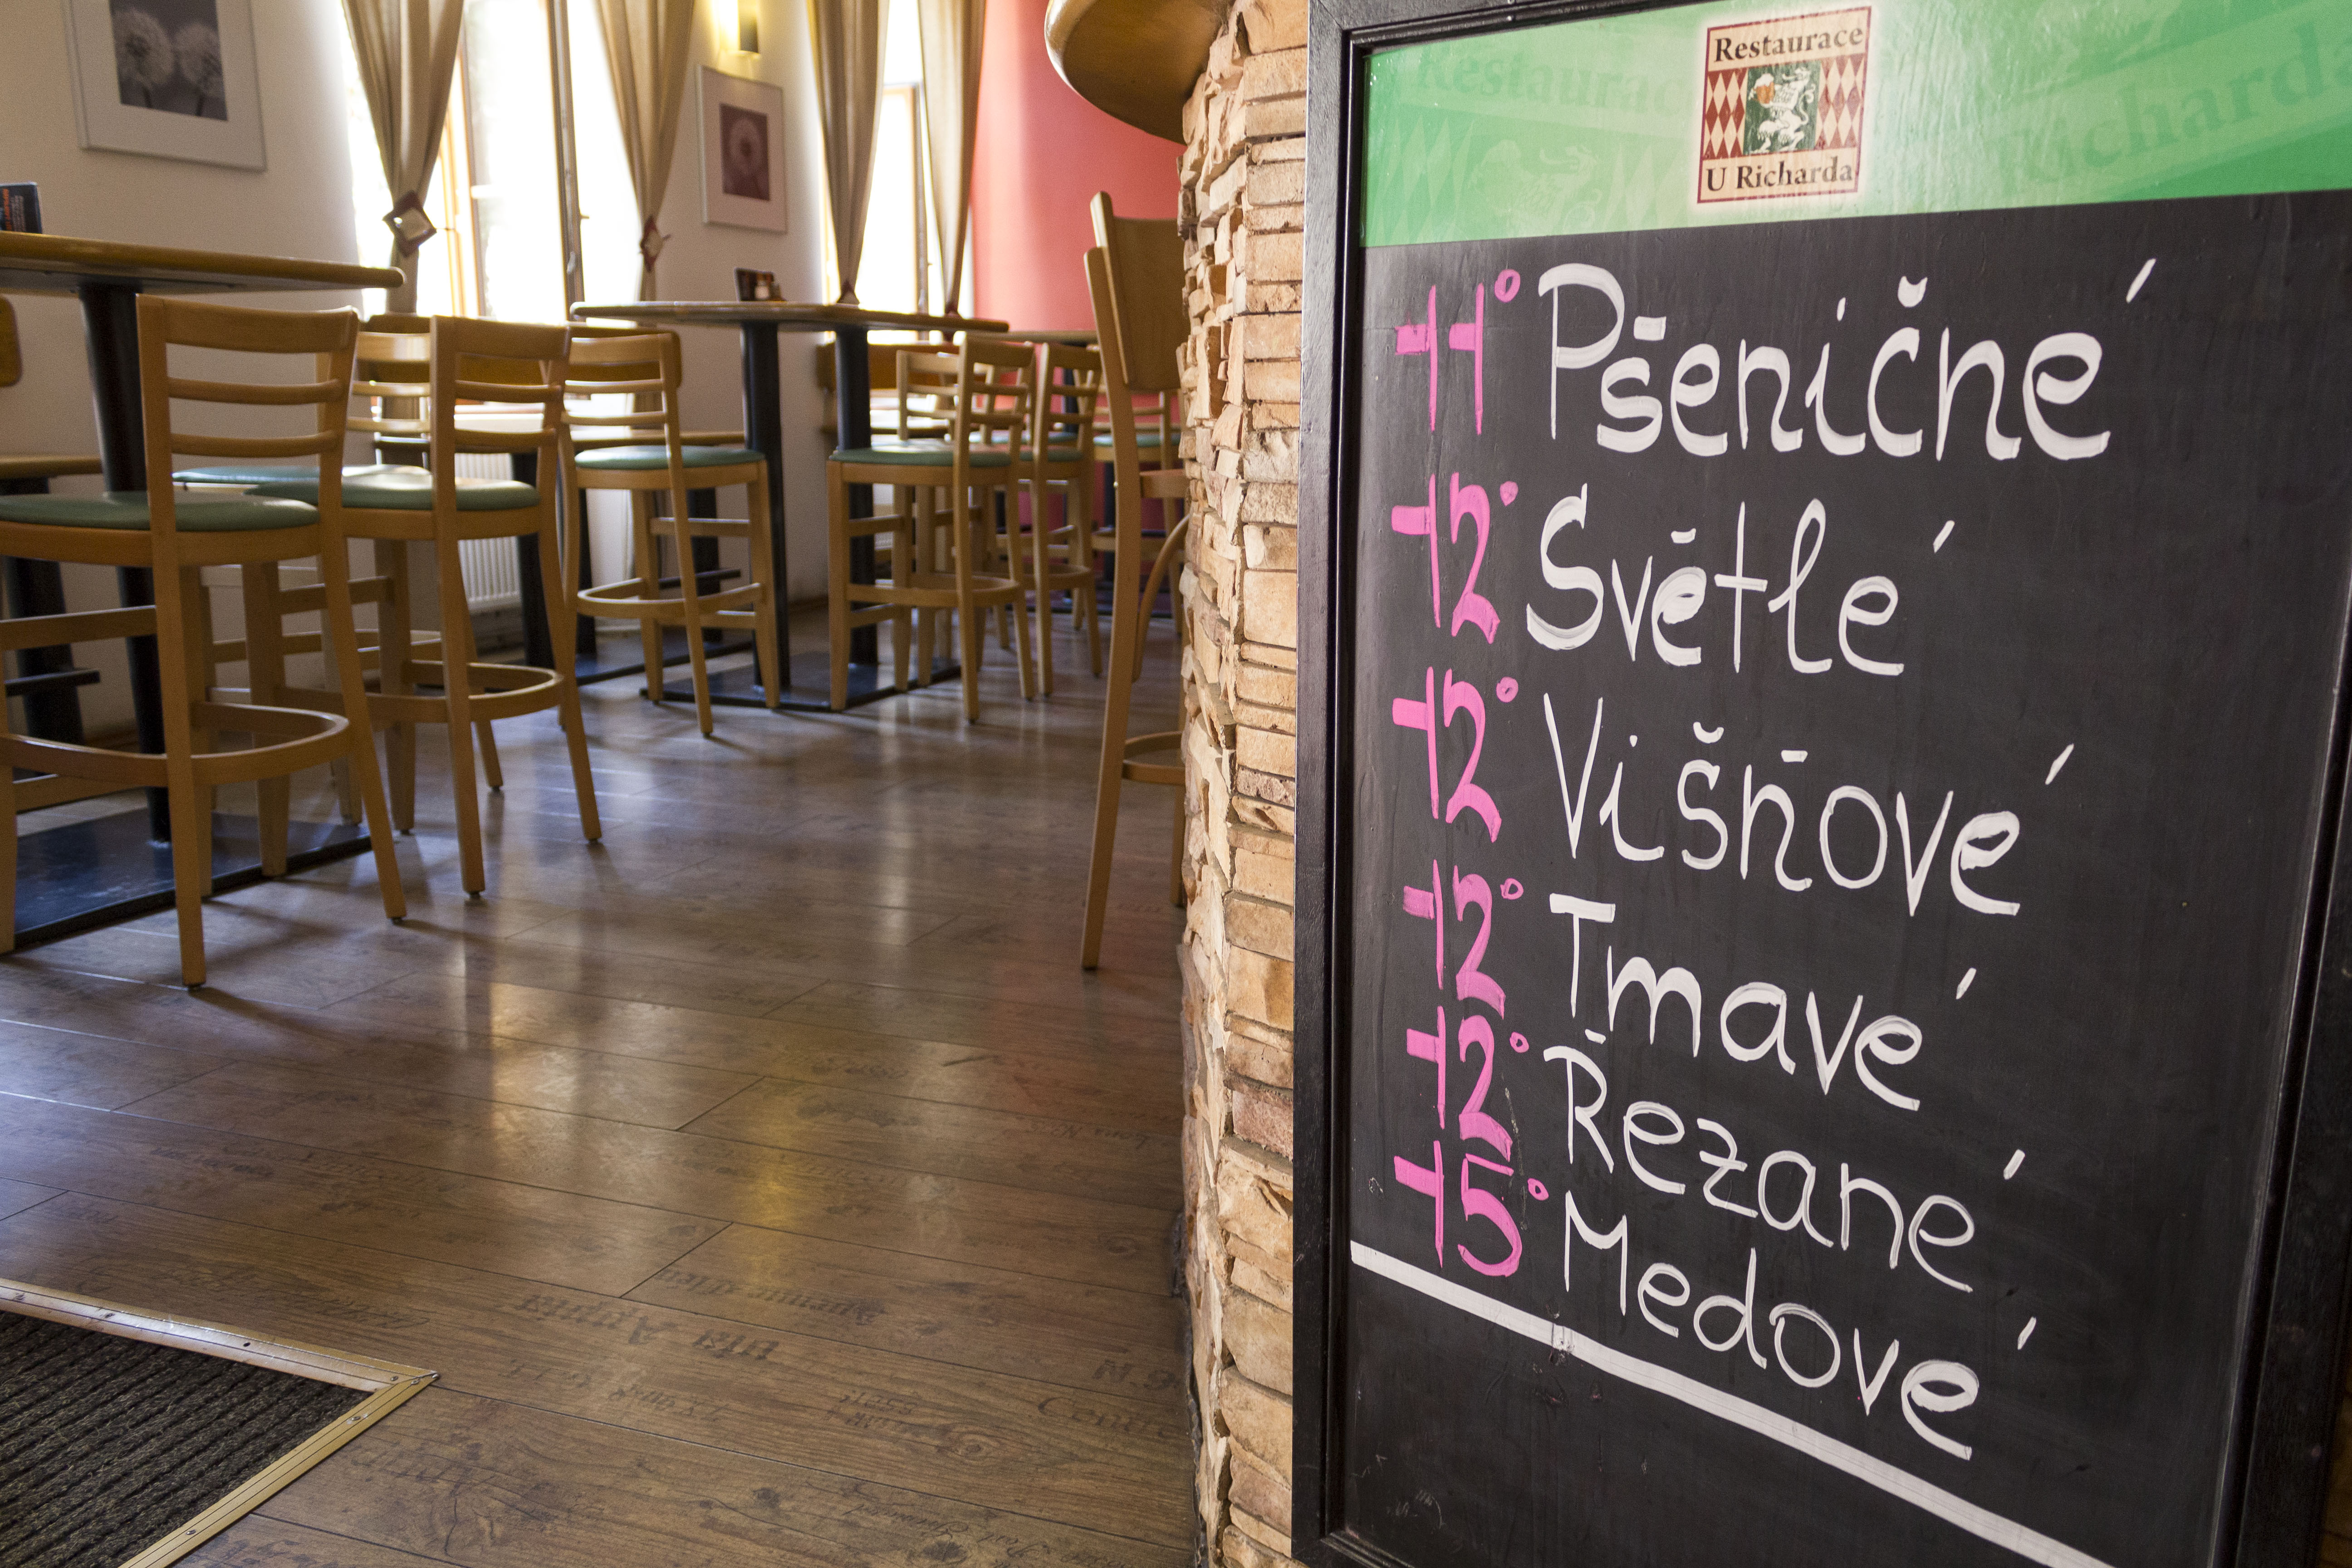 Restaurace
U Richarda
11° Pšeničné
12° Světlé
12° Višňové
12° Tmavé
12° Řezané
15° Medové